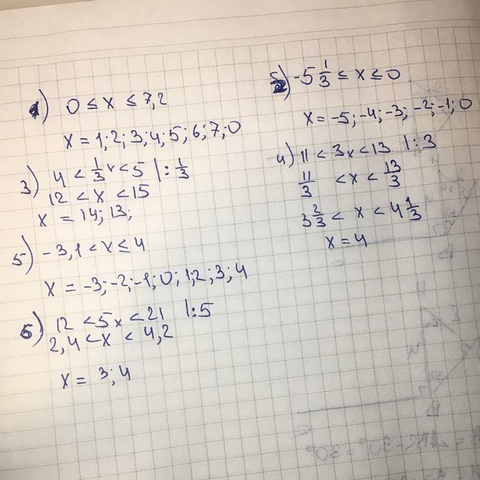 1) 0 ≤ x ≤ 7,2
x = 1; 2; 3; 4; 5; 6; 7; 0
3) 4 < 1/3 x < 5 | : 1/3
12 < x < 15
x = 14; 13;
5) -3,1 < x ≤ 4
x = -3; -2; -1; 0; 1; 2; 3; 4
6) 12 < 5x < 21 | : 5
2,4 < x < 4,2
x = 3; 4
2) -5 1/3 ≤ x ≤ 0
x = -5; -4; -3; -2; -1; 0
4) 11 < 3x < 13 | : 3
11/3 < x < 13/3
3 2/3 < x < 4 1/3
x = 4